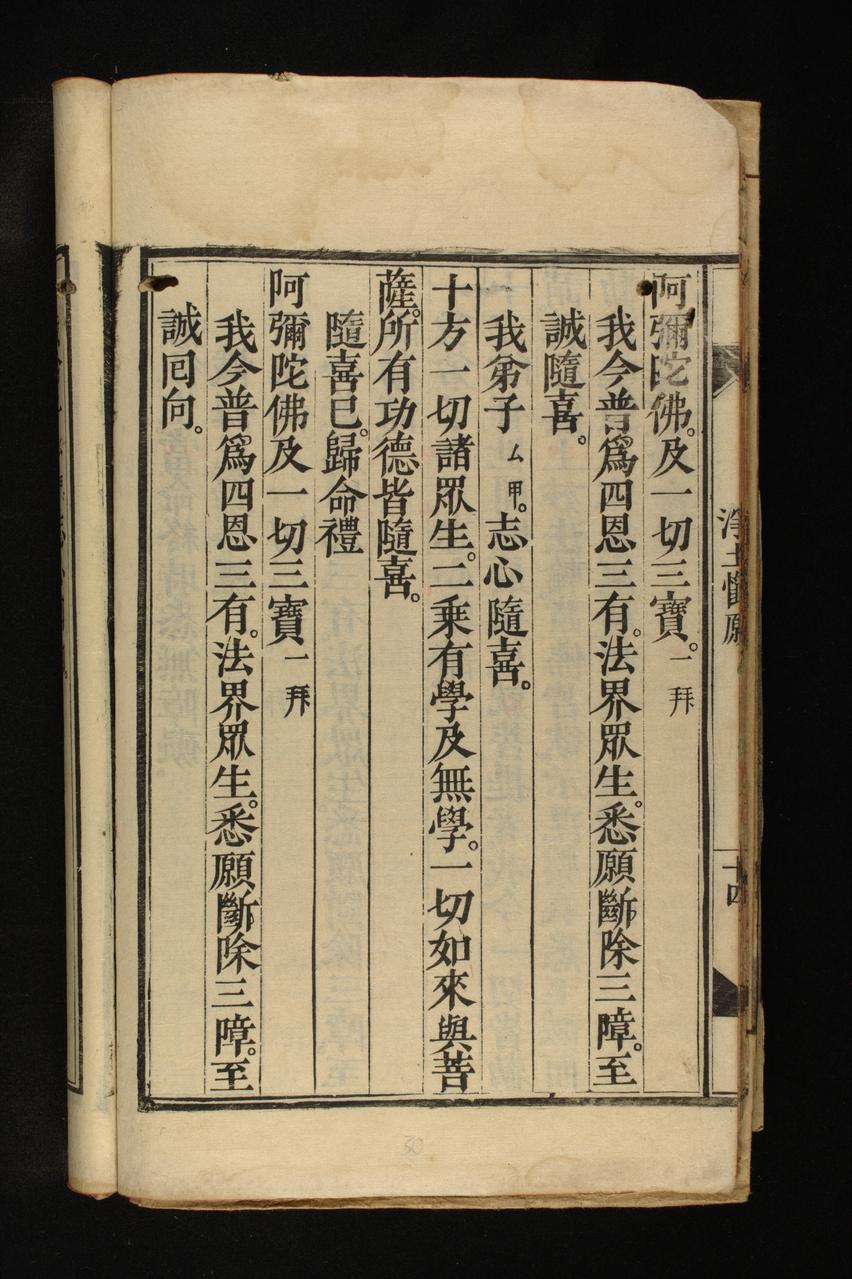 淨土懺願
十四
阿彌陀佛。及一切三寶。一拜
我今普爲四恩三有。法界眾生。悉願斷除三障。至
誠隨喜。
我弟子ム甲。志心隨喜。
十方一切諸眾生。二乘有學及無學。一切如來與菩
薩。所有功德皆隨喜。
隨喜已。歸命禮
阿彌陀佛及一切三寶。一拜
我今普爲四恩三有。法界眾生。悉願斷除三障。至
誠回向。
30